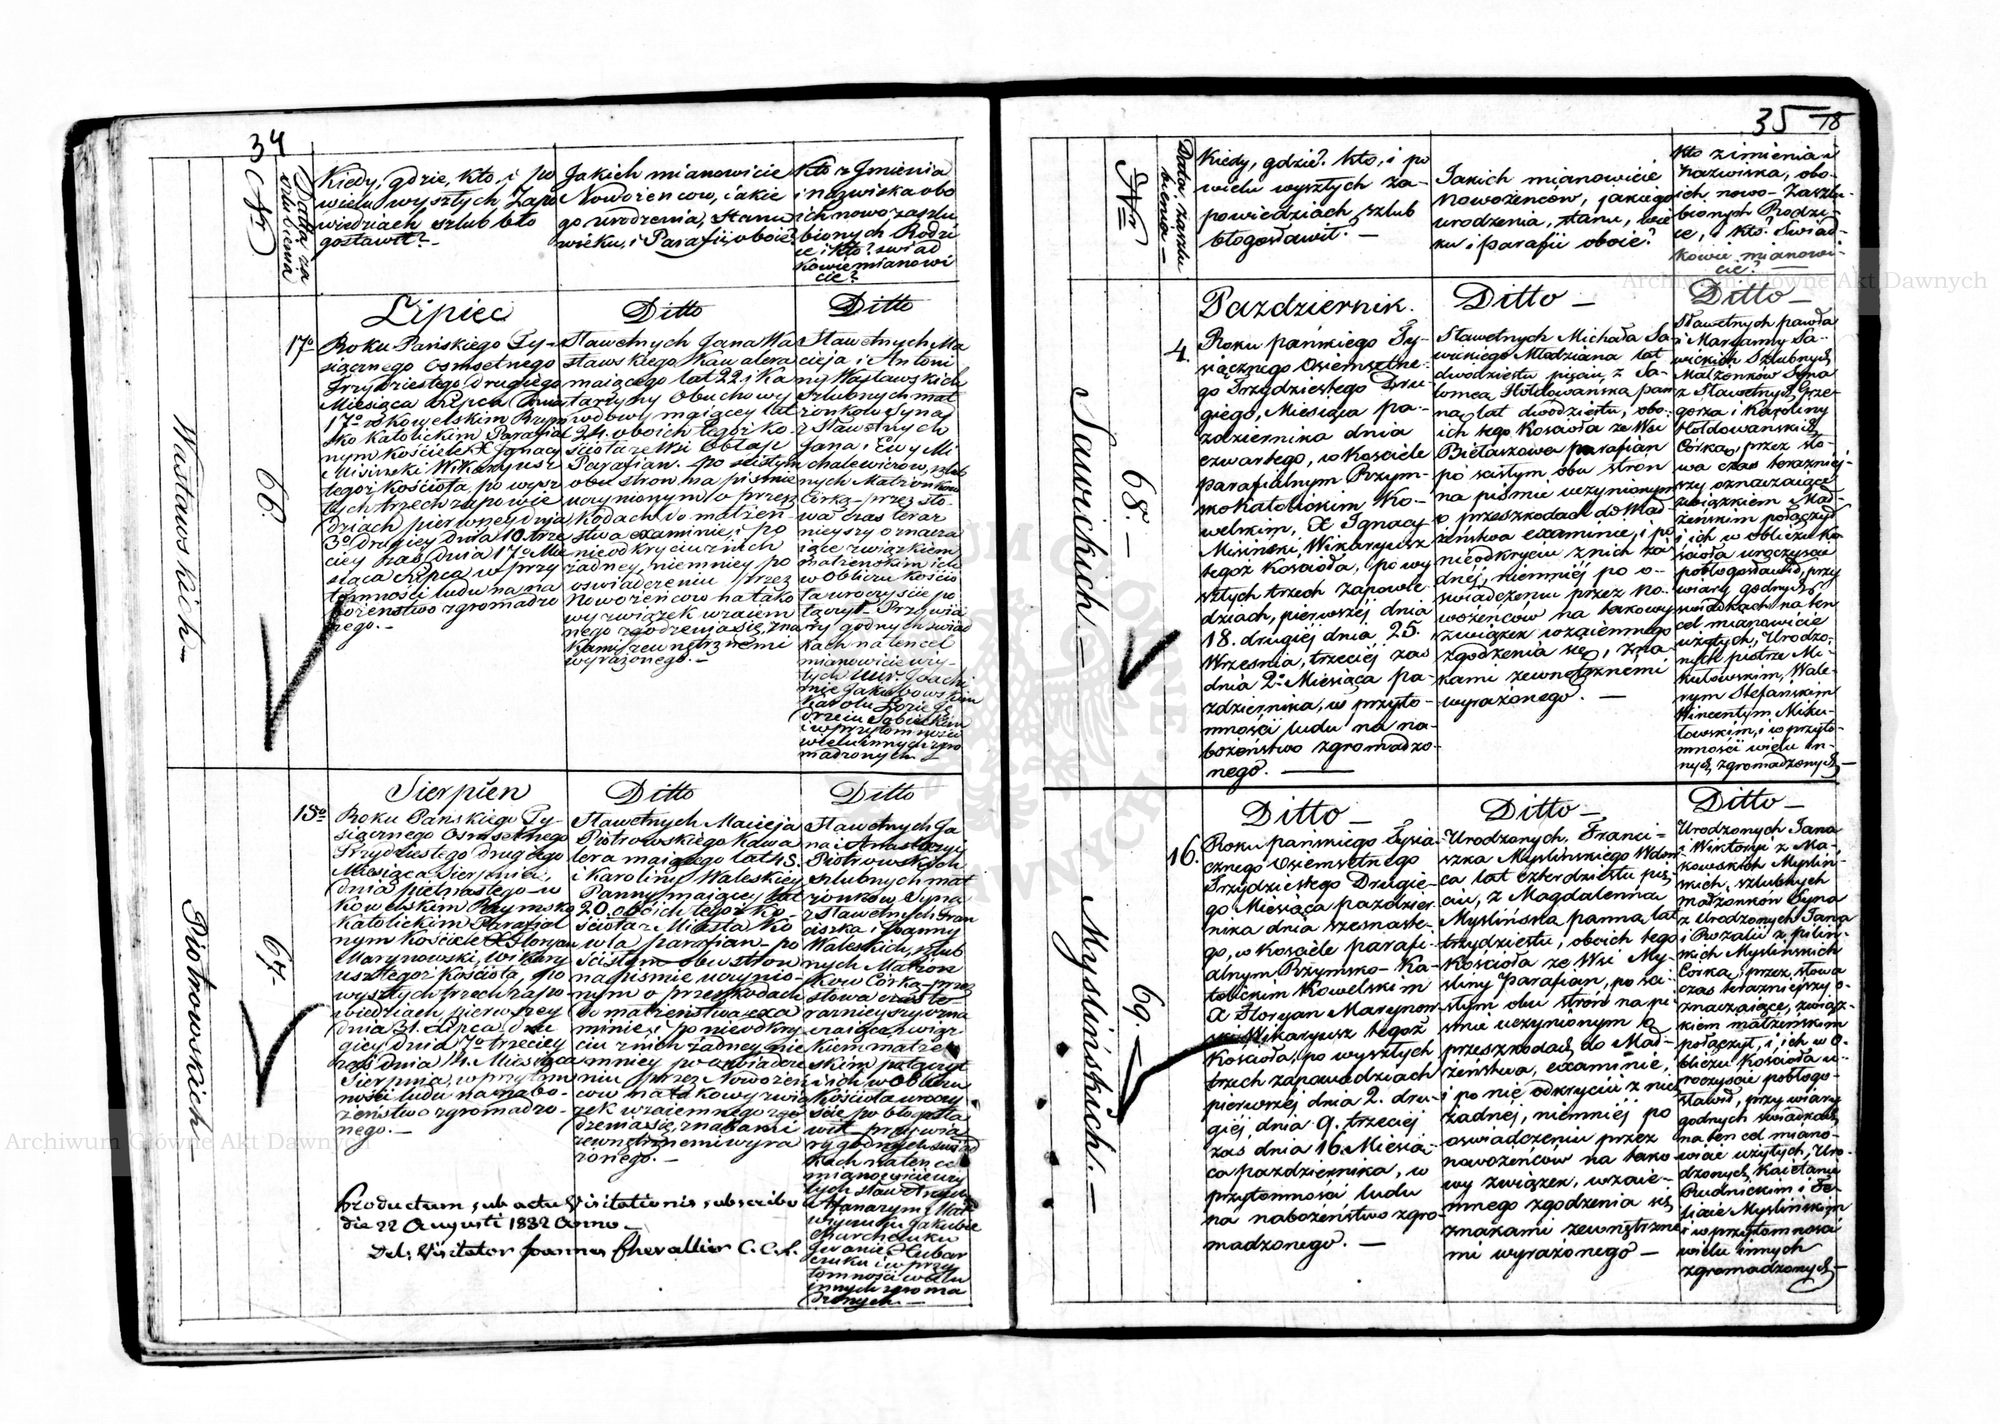 34
Nr
Data za
szlubienia
Kiedy, gdzie, kto, i po
wielu wyszłych Zapo
wiedziach szlub bło
gosławił?
Jakich mianowicie
Nowożeńcow, iakie
go urodzenia, stanu
wieku, i Parafii, oboie?
Kto z Jmienia
i nazwiska obo
ich nowo zaszlu
bionych Rodzi
ce i kto? swiad
kowie mianowi
cie?
Wasławskich
66.
17o
Lipiec
Roku Pańskiego Ty-
siącznego Osmsetnego
Trzydziestego drugiego
Miesiąca Lipca Dnia
17o w Kowelskim Rzym
sko Katolickim Parafial
nym Kościele X Jgnacy
Misinski Wikaryusz
tegoż Kościoła, po wysz
łych trzech zapowie
dziach pierwszey dnia
3o drugiey dnia 10. trze
ciey zas dnia 17o Mie
siąca Lipca w przy
tomności ludu na na
bożenstwo zgromadzo
nego.-
Ditto
Sławetnych Jana Wa
sławskiego Kawalera
maiącego lat 22. i Ka
tarzyny Obuchowy
wdowy maiącey lat
24. oboich tegoż ko
ścioła ze Wsi
Parafian. po scisłym
obu stron, na pismie
uczynionym o przesz
kodach do małżeń
stwa examinie, i po
nieodkryciu z nich
żadney, niemniey po
oswiadczeniu przez
Nowożeńcow na tako
wy związek wzaiem
nego zgodzenia się, zna
kami zewnętrznemi
wyrażonego.-
Ditto
Sławetnych Ma
cieja i Antoni
ny Wasławskich
szlubnych mał
żonkow Syna,
z Sławetnych
Jana i Ewy Mi
chalewiczow, szlub
nych Małżonkow
Corką - przez sło-
wa czas teraz
nieyszy oznacza
iące związkiem
małżenskim ich
w Obliczu Kościo
ła uroczyscie po
łączył. Przy wia
ry godnych swiad
kach na ten cel
mianowicie uży-
tych Joachi
mie Jakubowskim
Karolu
drzeiu Sobieskim
i w przytomności
wielu innych zgro
madzonych.
Piotrowskich
67.
15o
Sierpień
Roku Pańskiego Ty
siącznego Osmsetnego
Trzydziestego drugiego
Miesiąca Sierpnia,
dnia pietnastego w
Kowelskim Rzymsko
Katolickim Parafial
nym Kościele X Floryan
Marynowski, Wikary
usz tegoż Kościoła, po
wyszłych trzech zapo
wiedziach pierwszey
dnia 31. Lipca, dru
giey dnia 7o trzeciey
zaś dnia 14. Miesiąca
Sierpnia, w przytom
ności ludu na nabo-
żenstwo zgromadzo-
nego.-
Ditto
Sławetnych Macieja
Piotrowskiego Kawa
lera maiącego lat 45.
i Karoliny Waleskiey
Panny maiącey lat
20. oboich tegoż Ko
ścioła z Miasta Ko
wla parafian po
ścisłem obu stron
na pismie uczynio-
nym o przeszkodach
do małżenstwa exa
minie, i po nieodkry
ciu z nich żadney nie
mniey po oswiadcze
niu przez Nowożeń
cow na takowy zwią
zek wzaiemnego zgo
dzenia się, znakami
zewnętrznemi wyra
żonego.-
Ditto
Sławetnych Ja
na i Anastazyi
Piotrowskich
szlubnych mał
żonkow, Syna
z Sławetnych Fran
ciszka i Joanny
Waleskich, szlub
nych Małżon
kow Corką przez
słowa czas te-
raznieyszy ozna
czaiące związ-
kiem małżeń
skim połączył
i ich w Obliczu
Kościoła uroczy
ście po błogosła
wił przy wia
ry godnych swiad
kach na ten cel
mianowicie uży
tych sławetnych
Mat
wieiczuku Jakubie
Iwanie Hubar
czuku i w przy
tomności wielu
innych zgroma
dzonych.-
Productum sub actu Visitationis subscribo
die 22 Augusti 1832 Anno.-
Del: Visitator Joannes Chevallier C. C. Ł.
35
18
Nr
Data zaszlu
bienia
Kiedy, gdzie? Kto, i po
wielu wyszłych za-
powiedziach, szlub
błogosławił? -
Jakich mianowicie
Nowożeńców, jakiego
urodzenia, stanu, wie
ku i parafii oboie?
Kto z imienia i
Nazwiska, obo-
ich nowo-Zaszlu-
bionych Rodzi-
ce, i kto? Swiad-
kowie mianowi-
cie?
Sawickich
68.
4.
Pazdziernik.
Roku pańskiego Ty-
siącznego Osiemsetne-
go Trzydziestego Dru-
giego, Miesiąca pa-
zdziernika dnia
czwartego, w Kościele
parafialnym Rzym-
skokatolickim Ko-
welskim, X Ignacy
Misinski, Wikaryusz
tegoż Kościoła, po wy
szłych trzech Zapowie-
dziach, pierwszéj dnia
18. drugiéj dnia 25.
Września, trzeciéj zaś
dnia 2o Miesiąca pa-
zdziernika, w przyto-
mności ludu na na-
bożeństwo zgromadzo-
nego.
Ditto -
Sławetnych Michała Sa
wickiego Młodziana lat
dwudziestu pięciu, z Sa-
lomeą Hołdowańską pan
ną, lat dwódziestu, obo-
ich tego Kościoła ze Wsi
Bielaszowa parafian
po scisłym obu stron
na piśmie uczynionym
o przeszkodach do Mał
żeństwa examinie, i po
nieodkryciu z nich ża
dnéj, niemniéj po o-
swiadczeniu przez No-
wożeńców na takowy
Związek wzaiemnego
zgodzenia się, zna-
kami zewnętrznémi
wyrażonego. -
Ditto -
Sławetnych pawła
i Maryanny Sa-
wickich Szlubnych
Małżonków Syna
z Sławetnych Grze-
gorza i Karoliny
Hołdowańskich
Córką, przez sło-
wa czas teraźniej-
szy oznaczające
związkiem Mał-
żeńskim połączył
i ich w obliczu Ko-
scioła uroczyscie
pobłogosławił, przy
wiary godnych
swiadkach na ten
cel mianowicie
użytych, Urodzo-
nych piotrze Mi-
kułowskim, Wale-
rym Stefańskim
Wincentym Miku-
łowskim, i w przyto-
mności wielu in-
nych zgromadzonych -
Myslińskich. -
69.
16.
Ditto -
Roku pańskiego Tysią-
cznego Osiemsetnego
Trzydziestego Drugie-
go Miesiąca pazdzier-
nika dnia szesnaste-
go, w Kościele parafi-
alnym Rzymsko-Ka-
tolickim Kowelskim
X Floryan Marynow
ski Wikaryusz tegoż
Kościoła, po wyszłych
trzech zapowiedziach
pierwszéj dnia 2. dru-
giéj dnia 9. trzeciéj
zaś dnia 16. Miesią-
ca pazdziernika, w
przytomności ludu
na nabożeństwo zgro-
madzonego. -
Ditto -
Urodzonych Franci=
szka Myslińskiego Wdow
ca lat czterdziestu pię-
ciu, z Magdaleną
Myslińską panną, lat
trzydziestu, oboich tego
Kościoła ze Wsi My-
śliny parafian, po sci-
słym obu stron na pi-
smie uczynionym o
przeszkodach do Mał-
żeństwa, examinie,
i po nie odkryciu z nich
żadnéj, niemniéj po
oswiadczeniu przez
nowożeńców na tako
wy związek, wzaie-
mnego zgodzenia się,
znakami zewnętrzne
mi wyrażonego -
Ditto -
Urodzonych Jana
i Wiktoryi z Ma-
kowskich Myslin-
skich, szlubnych
małżonków Syna
z Urodzonych Jana
i Rozalii z pilin-
skich Myslinskich
Córką, przez słowa
czas teraźniejszy o-
znaczające, związ-
kiem małżeńskim
połączył, i ich w O-
bliczu Kościoła u-
roczyscie pobłogo-
sławił, przy wiary
godnych swiadkach
na ten cel miano-
wicie użytych, Uro-
dzonych Kaietanie
Rudnickim i Fe-
lixie Myslińskim
i w przytomności
wielu innych
zgromadzonych -
Archiwum Główne Akt Dawnych
Archiwum Główne Akt Dawnych